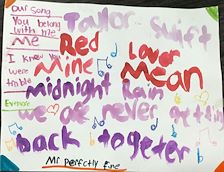 Our Song
You belong
with me
Me
I knew you
were
trouble
Evermore
Taylor Swift
Red
Lover
Mine
Mean
Midnight Rain
we are never gettin
back together
Mr perfectly fine